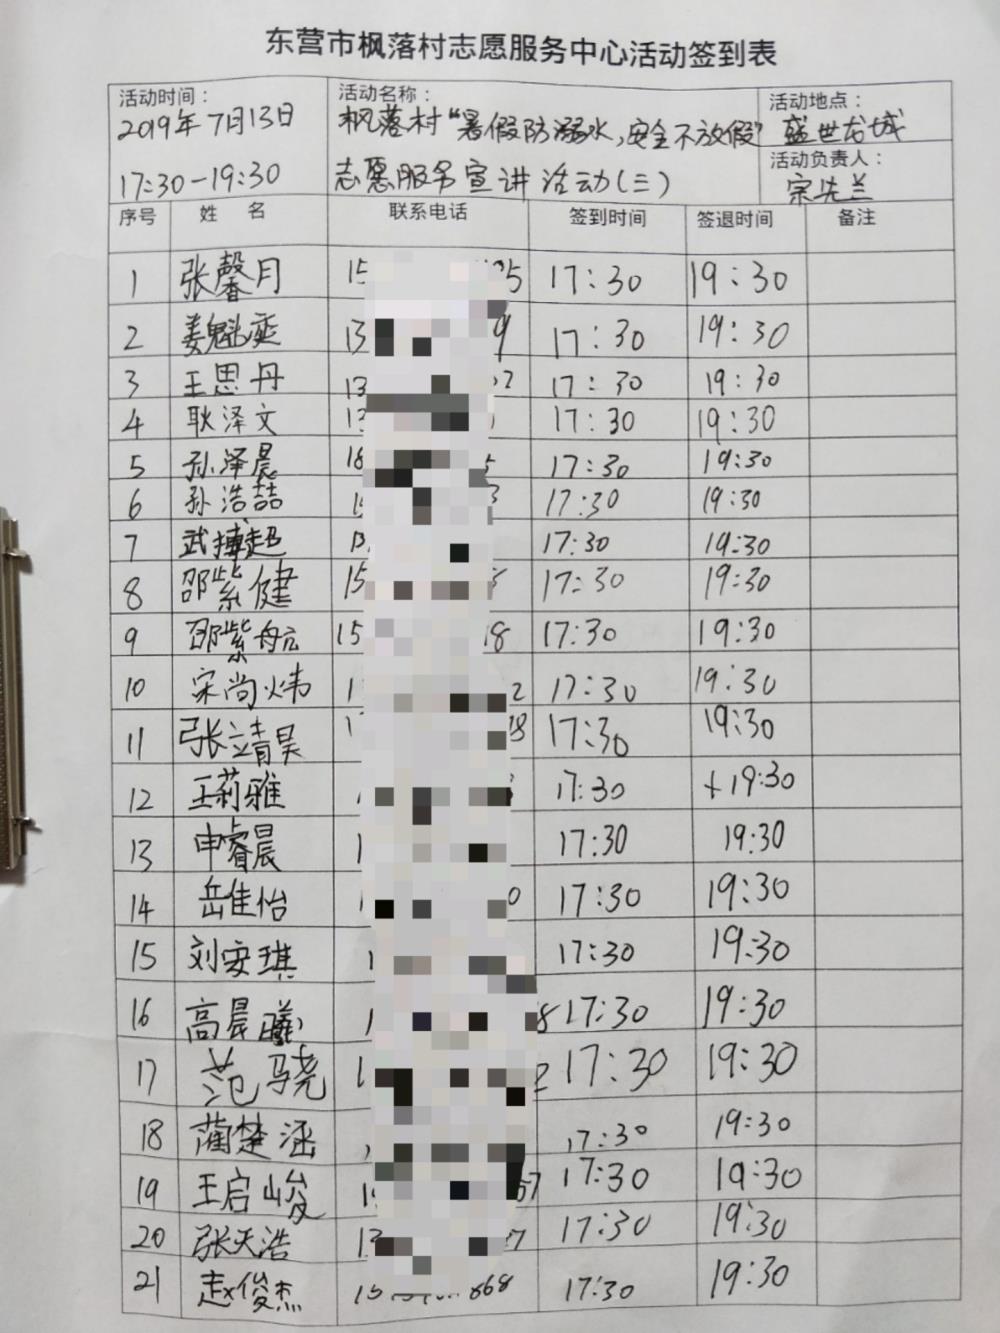 东营市枫落村志愿服务中心活动签到表
活动时间： 活动名称： 活动地点：
2019年7月13日 枫落村“暑假防溺水,安全不放假” 盛世龙城
活动负责人：
17:30-19:30 志愿服务宣讲活动(三) 宗先兰
序号 姓名 联系电话 签到时间 签退时间 备注
1 张馨月 15 5 17:30 19:30
2 姜魁奕 13 9 17:30 19:30
3 王思丹 13 2 17:30 19:30
4 耿泽文 13 17:30 19:30
5 孙泽晨 18 17:30 19:30
6 孙浩喆 1 3 17:30 19:30
7 武搏超 13 17:30 19:30
8 邵紫健 15 17:30 19:30
9 邵紫航 15 18 17:30 19:30
10 宋尚炜 1 2 17:30 19:30
11 张靖昊 1 8 17:30 19:30
12 王莉雅 17:30 19:30
13 申睿晨 1 17:30 19:30
14 岳佳怡 1 0 17:30 19:30
15 刘安琪 1 17:30 19:30
16 高晨曦 1 8 17:30 19:30
17 范骁 1 2 17:30 19:30
18 蔺楚涵 17:30 19:30
19 王启峻 1 57 17:30 19:30
20 张天浩 13 7 17:30 19:30
21 赵俊杰 15 668 17:30 19:30